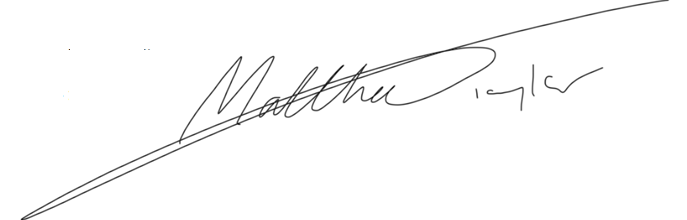 Matthew Taylor